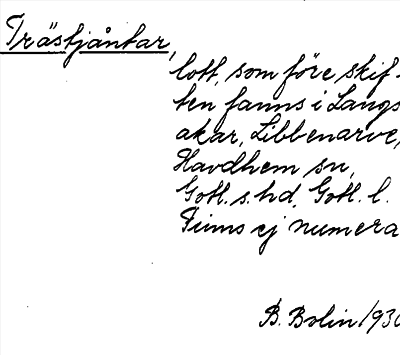 Trästjäntar,
lott, som före skif-
ten fanns i Langs
akar, Libbenarve,
Havdhem sn,
Gotl. s. hd, Gotl. l.
Finns ej numera
B. Bolin 1930